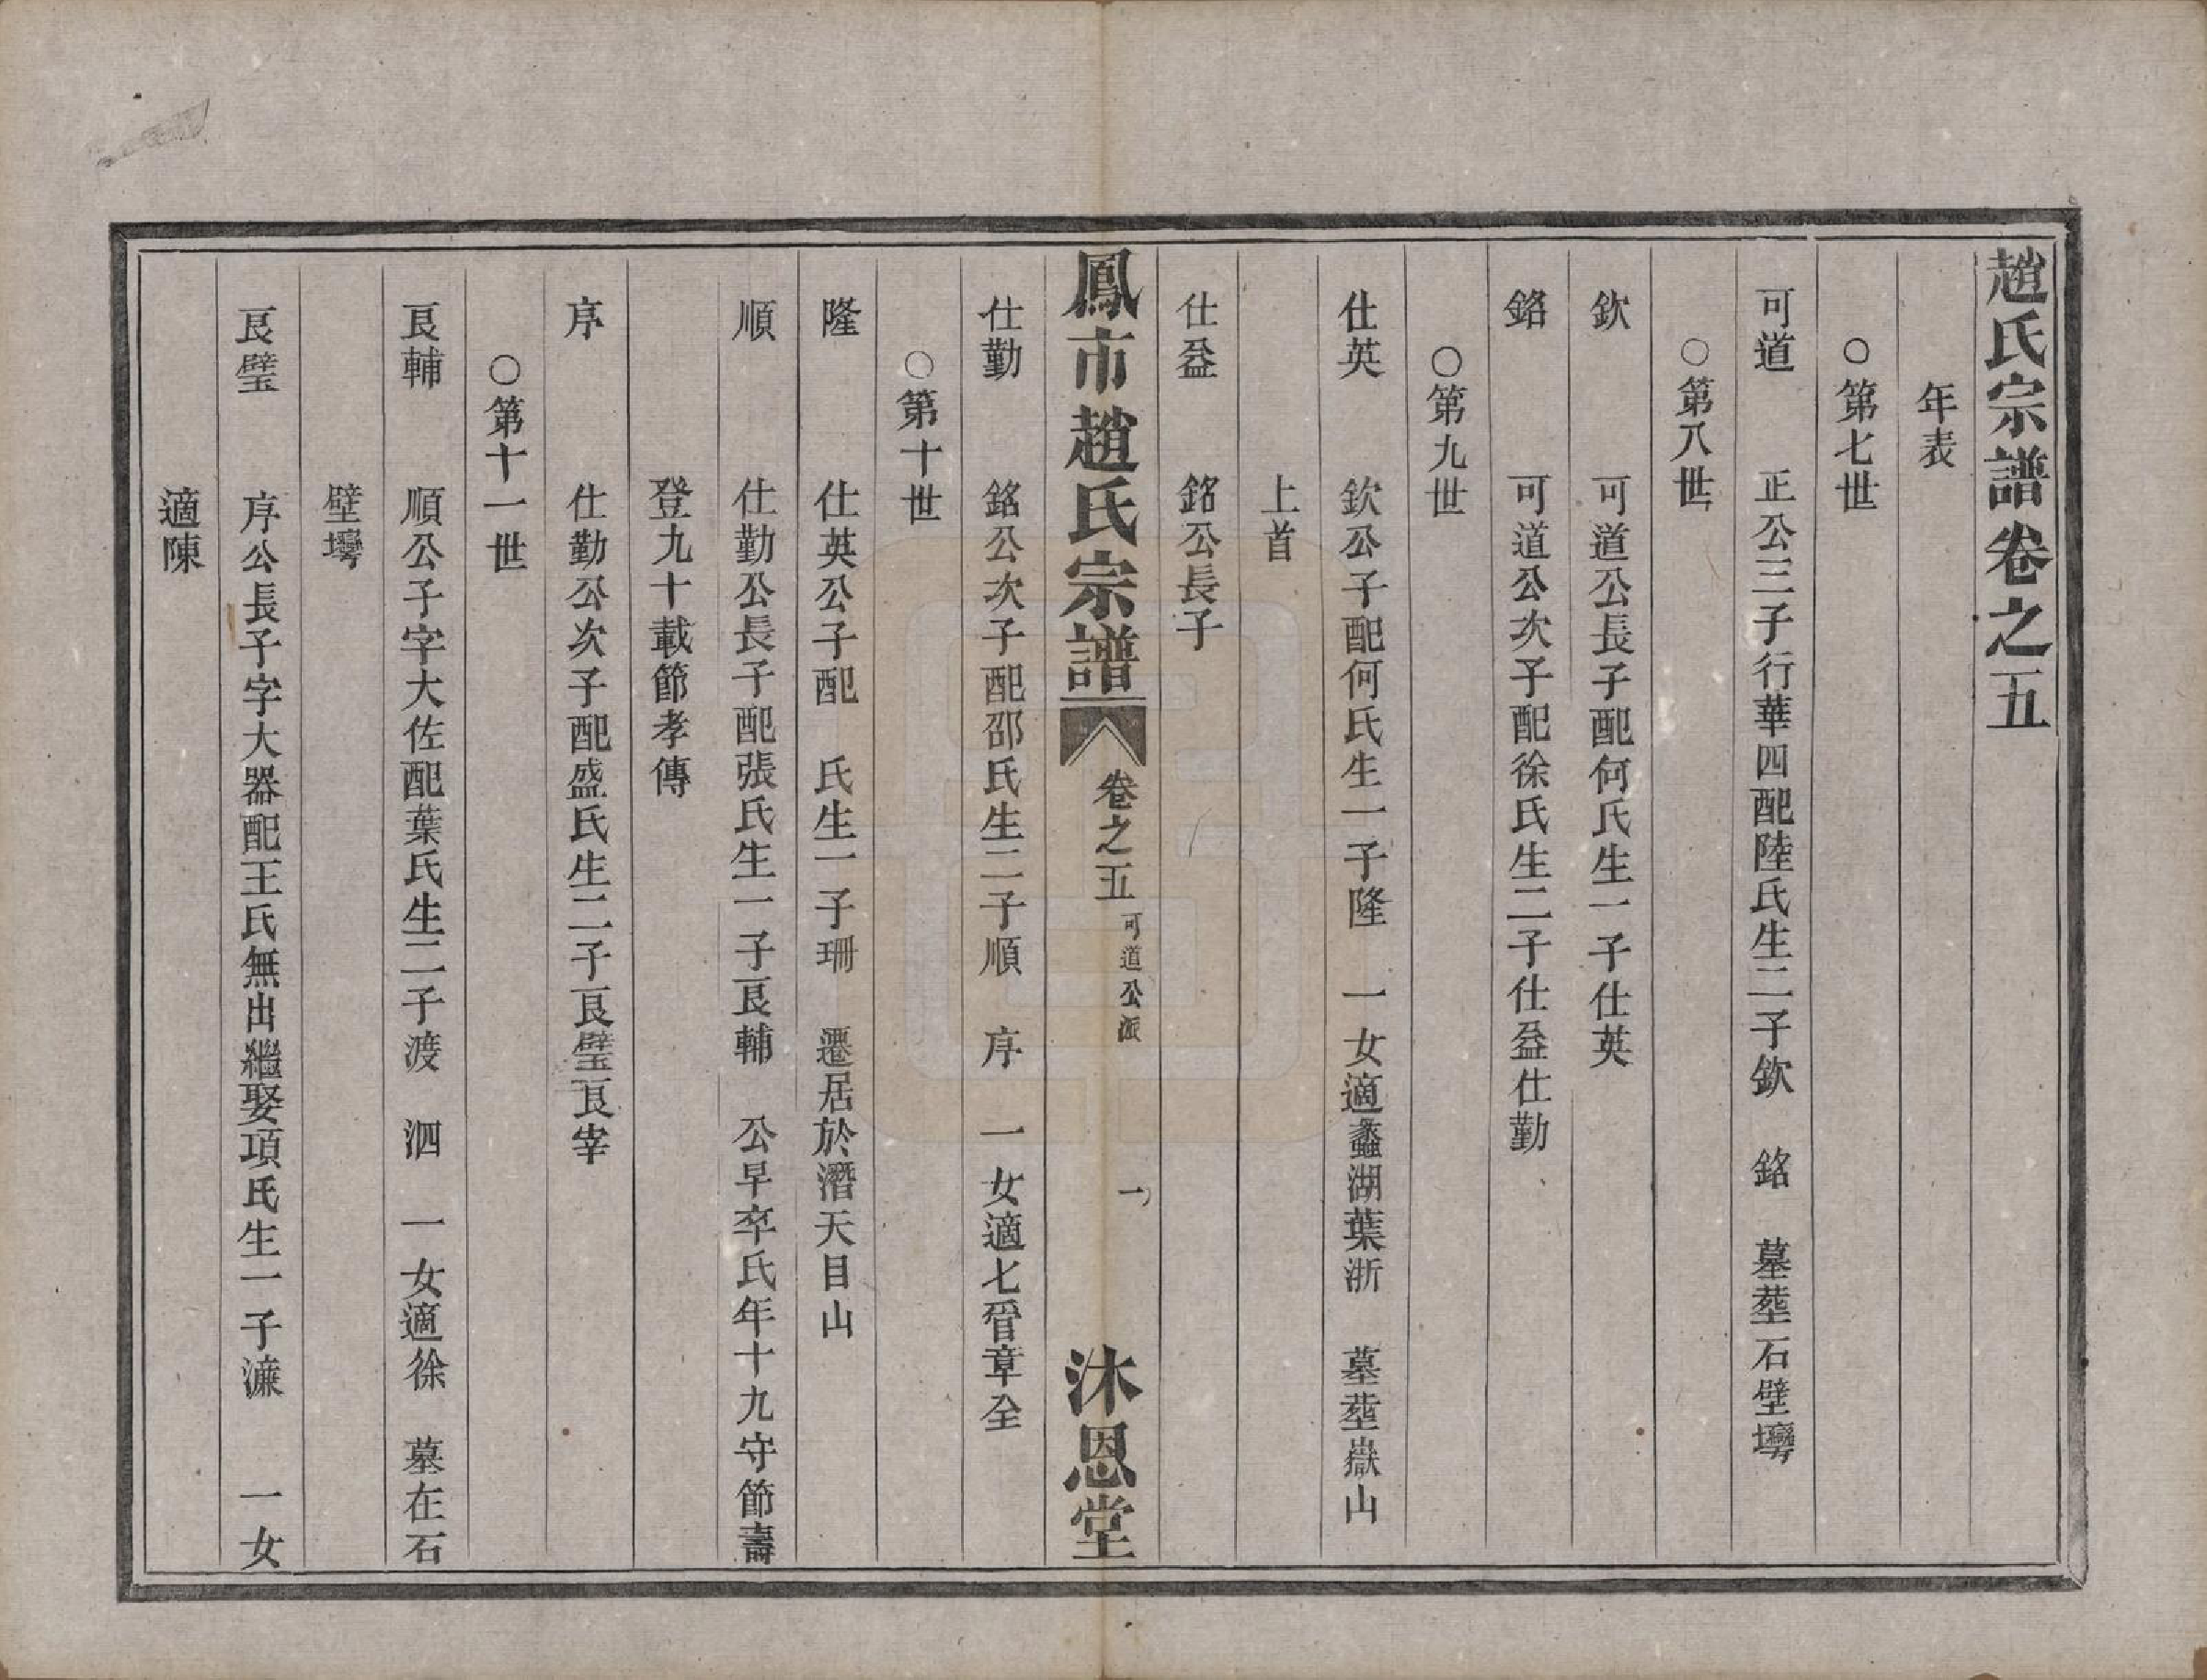 趙氏宗譜卷之五
年表
○第七世
可道 正公三子行華四配陸氏生二子欽 銘 墓塟石壁壪
○第八世
欽 可道公長子配何氏生一子仕英
銘 可道公次子配徐氏生二子仕益仕勤
○第九世
仕英 欽公子配何氏生一子隆 一女適蠡湖葉浙 墓塟嶽山
上首
仕益 銘公長子
鳳市趙氏宗譜 卷之五 可道公派 一 沐恩堂
仕勤 銘公次子配邵氏生二子順 序 一女適七管章全
○第十世
隆 仕英公子配 氏生一子珊 遷居於潛天目山
順 仕勤公長子配張氏生一子良輔 公早卒氏年十九守節壽
登九十載節孝傳
序 仕勤公次子配盛氏生二子良璧良宰
○第十一世
良輔 順公子字大佐配葉氏生二子渡 泗 一女適徐 墓在石
壁壪
良璧 序公長子字大器配王氏無出繼娶項氏生一子濂 一女
適陳